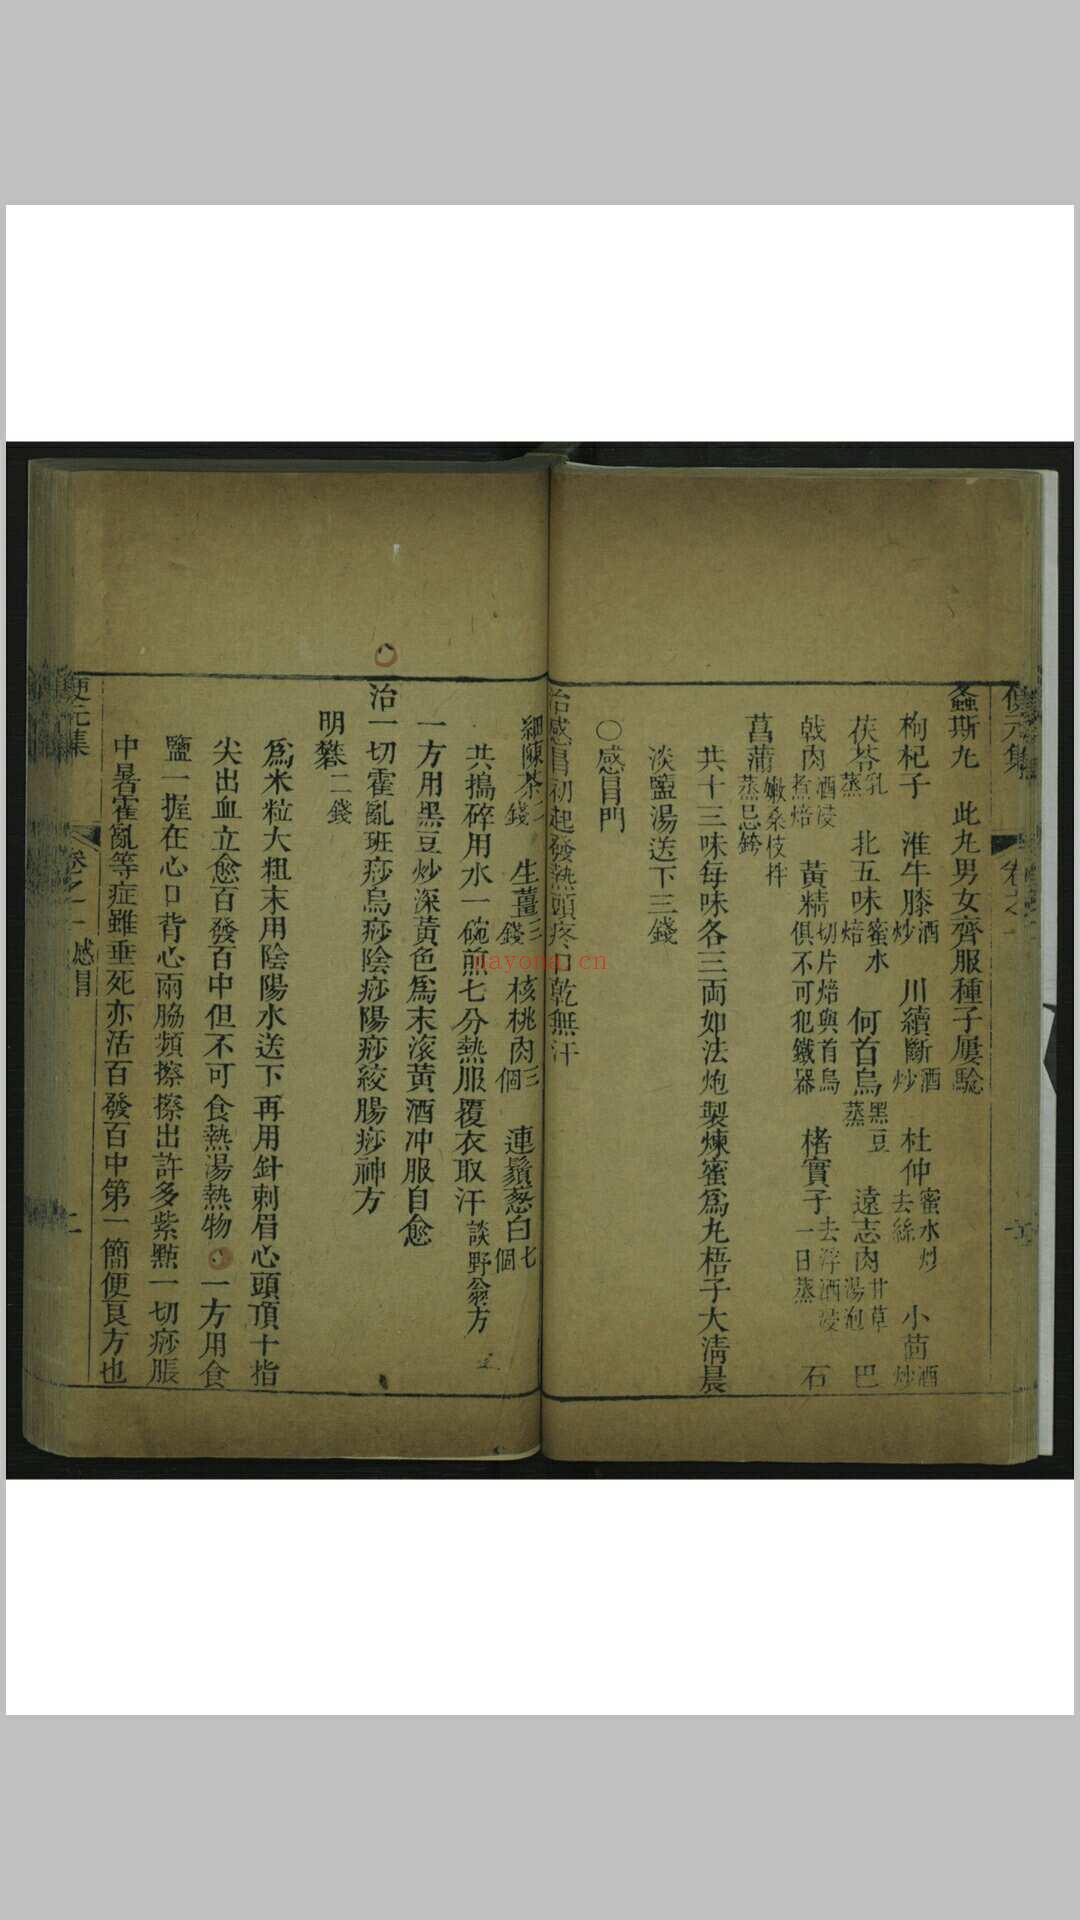 螽斯丸 此丸男女齊服種子屢騐
枸杞子 淮牛膝酒炒 川續斷酒炒 杜仲蜜水炒去絲 小茴酒炒
茯苓乳蒸 北五味蜜水焙 何首烏黑豆蒸 遠志肉甘草湯泡 巴
戟肉酒浸煮焙 黃精切片焙與首烏俱不可犯鐵器 楮實子去浮酒浸一日蒸 石
菖蒲嫩桑枝拌蒸忌銙
共十三味每味各三両如法炮製煉蜜爲丸梧子大淸晨
淡鹽湯送下三錢
○感冒門
治感冒初起發熱頭疼口乾無汗
細陳茶二錢 生薑三錢 核桃肉三個 連鬚葱白七個
共搗碎用水一碗煎七分熱服覆衣取汗談野翁方
一方用黑豆炒深黃色爲末滾黃酒冲服自愈
治一切霍亂班痧烏痧陰痧陽痧絞腸痧神方
明礬二錢
爲米粒大粗末用陰陽水送下再用針刺眉心頭頂十指
尖出血立愈百發百中但不可食熱湯熱物 一方用食
鹽一握在心口背心兩脇頻擦擦出許多紫㸃一切痧脹
中暑霍亂等症雖垂死亦活百發百中第一簡便良方也
便元集 卷之一 感冒 二
nayona.cn